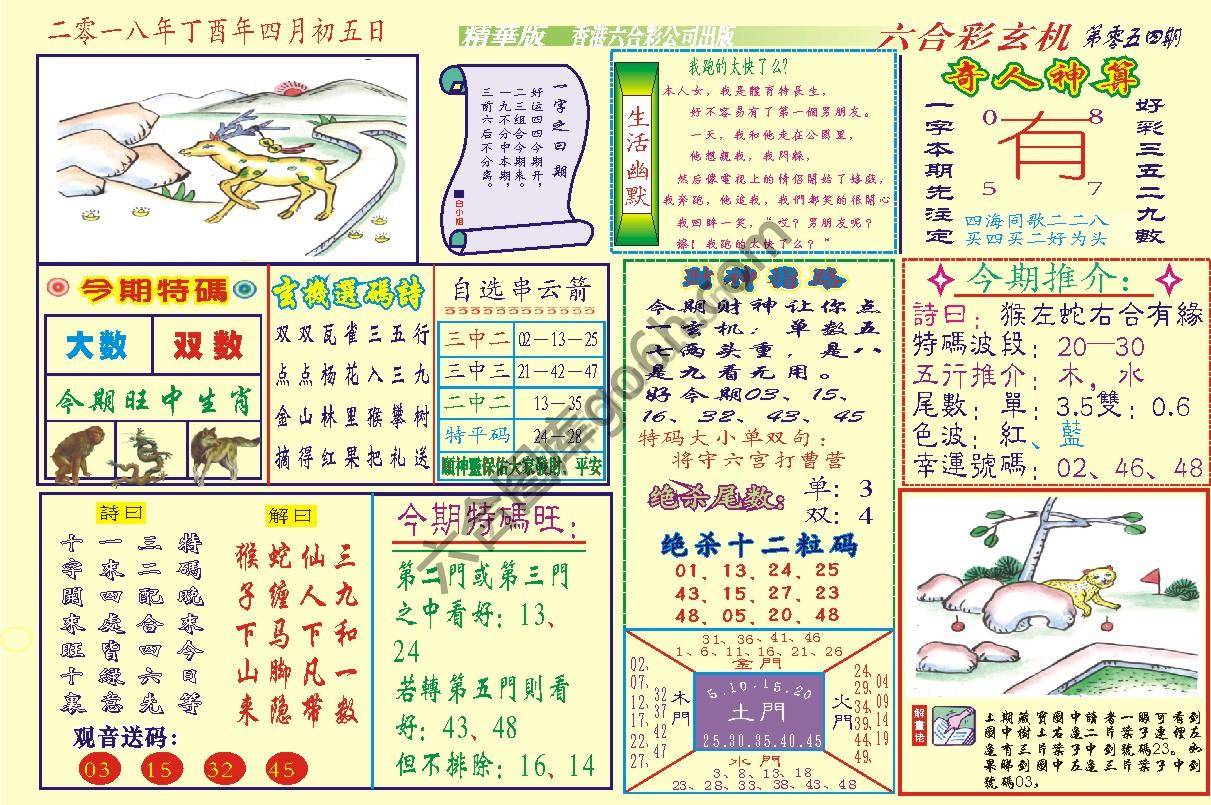 二零一八年丁酉年四月初五日
精華版 香港六合彩公司出版
六合彩玄机 第零五四期
一字之曰期
好运四四今期开，
二三组合今期来。
一九不分中本期，
三前六后不分离。
白小姐
生活幽默
我跑的太快了么？
本人女，我是體育特長生，
好不容易有了第一個男朋友。
一天，我和他走在公園里，
他想親我，我閃躲，
然后像電視上的情侶開始了嬉戲，
我奔跑，他追我，我們都笑的很開心
我回眸一笑，“哎？男朋友呢？
擦！我跑的太快了么？”
奇人神算
一字本期先注定
0 8
有
5 7
好彩三五二九數
四海同歌二二八
买四买二好为头
今期特碼
大数 双数
今期旺中生肖
玄機選碼詩
双双瓦雀三五行
点点杨花入三九
金山林里猴攀树
摘得红果把礼送
自选串云箭
三中二 02—13—25
三中三 21—42—47
二中二 13—35
特平码 24—28
願神靈保佑大家發財、平安
財神密路
今期财神让你点
一玄机：单数五
七两头重，是八
是九看无用。
好今期03、15、
16、32、43、45
特码大小单双句：
将守六宫打曹营
绝杀尾数： 单：3
双：4
绝杀十二粒码
01、13、24、25
43、15、27、23
48、05、20、48
今期推介：
詩曰：猴左蛇右合有緣
特碼波段：20—30
五行推介：木，水
尾數：單：3.5雙：0.6
色波：紅、藍
幸運號碼：02、46、48
詩曰
特碼晚來今日等
三二配合四六先
一來四處皆綠意
十字開來旺十裏
解曰
三九和一数
仙人下凡带
蛇缠马脚隐
猴子下山来
观音送码：
03 15 32 45
今期特碼旺：
第二門或第三門
之中看好：13、
24
若轉第五門則看
好：43、48
但不排除：16、14
31、36、41、46
1、6、11、16、21、26
金門
02、
07、
12、
17、
22、
27、
32
37
42
47
木門
5.10.15.20
土門
25.30.35.40.45
火門
24、
29、
34、
39、
44、
49、
04
09
14
19
水門
3、8、13、18
23、28、33、38、43、48
解畫佬
上期藏寶圖中讀者一眼可看到
圖中樹上右邊二片葉子連裡左
邊有三片葉子中到號碼23。如
果睇到圖中左邊三片葉子中到
號碼03，
六合图库go6h.com